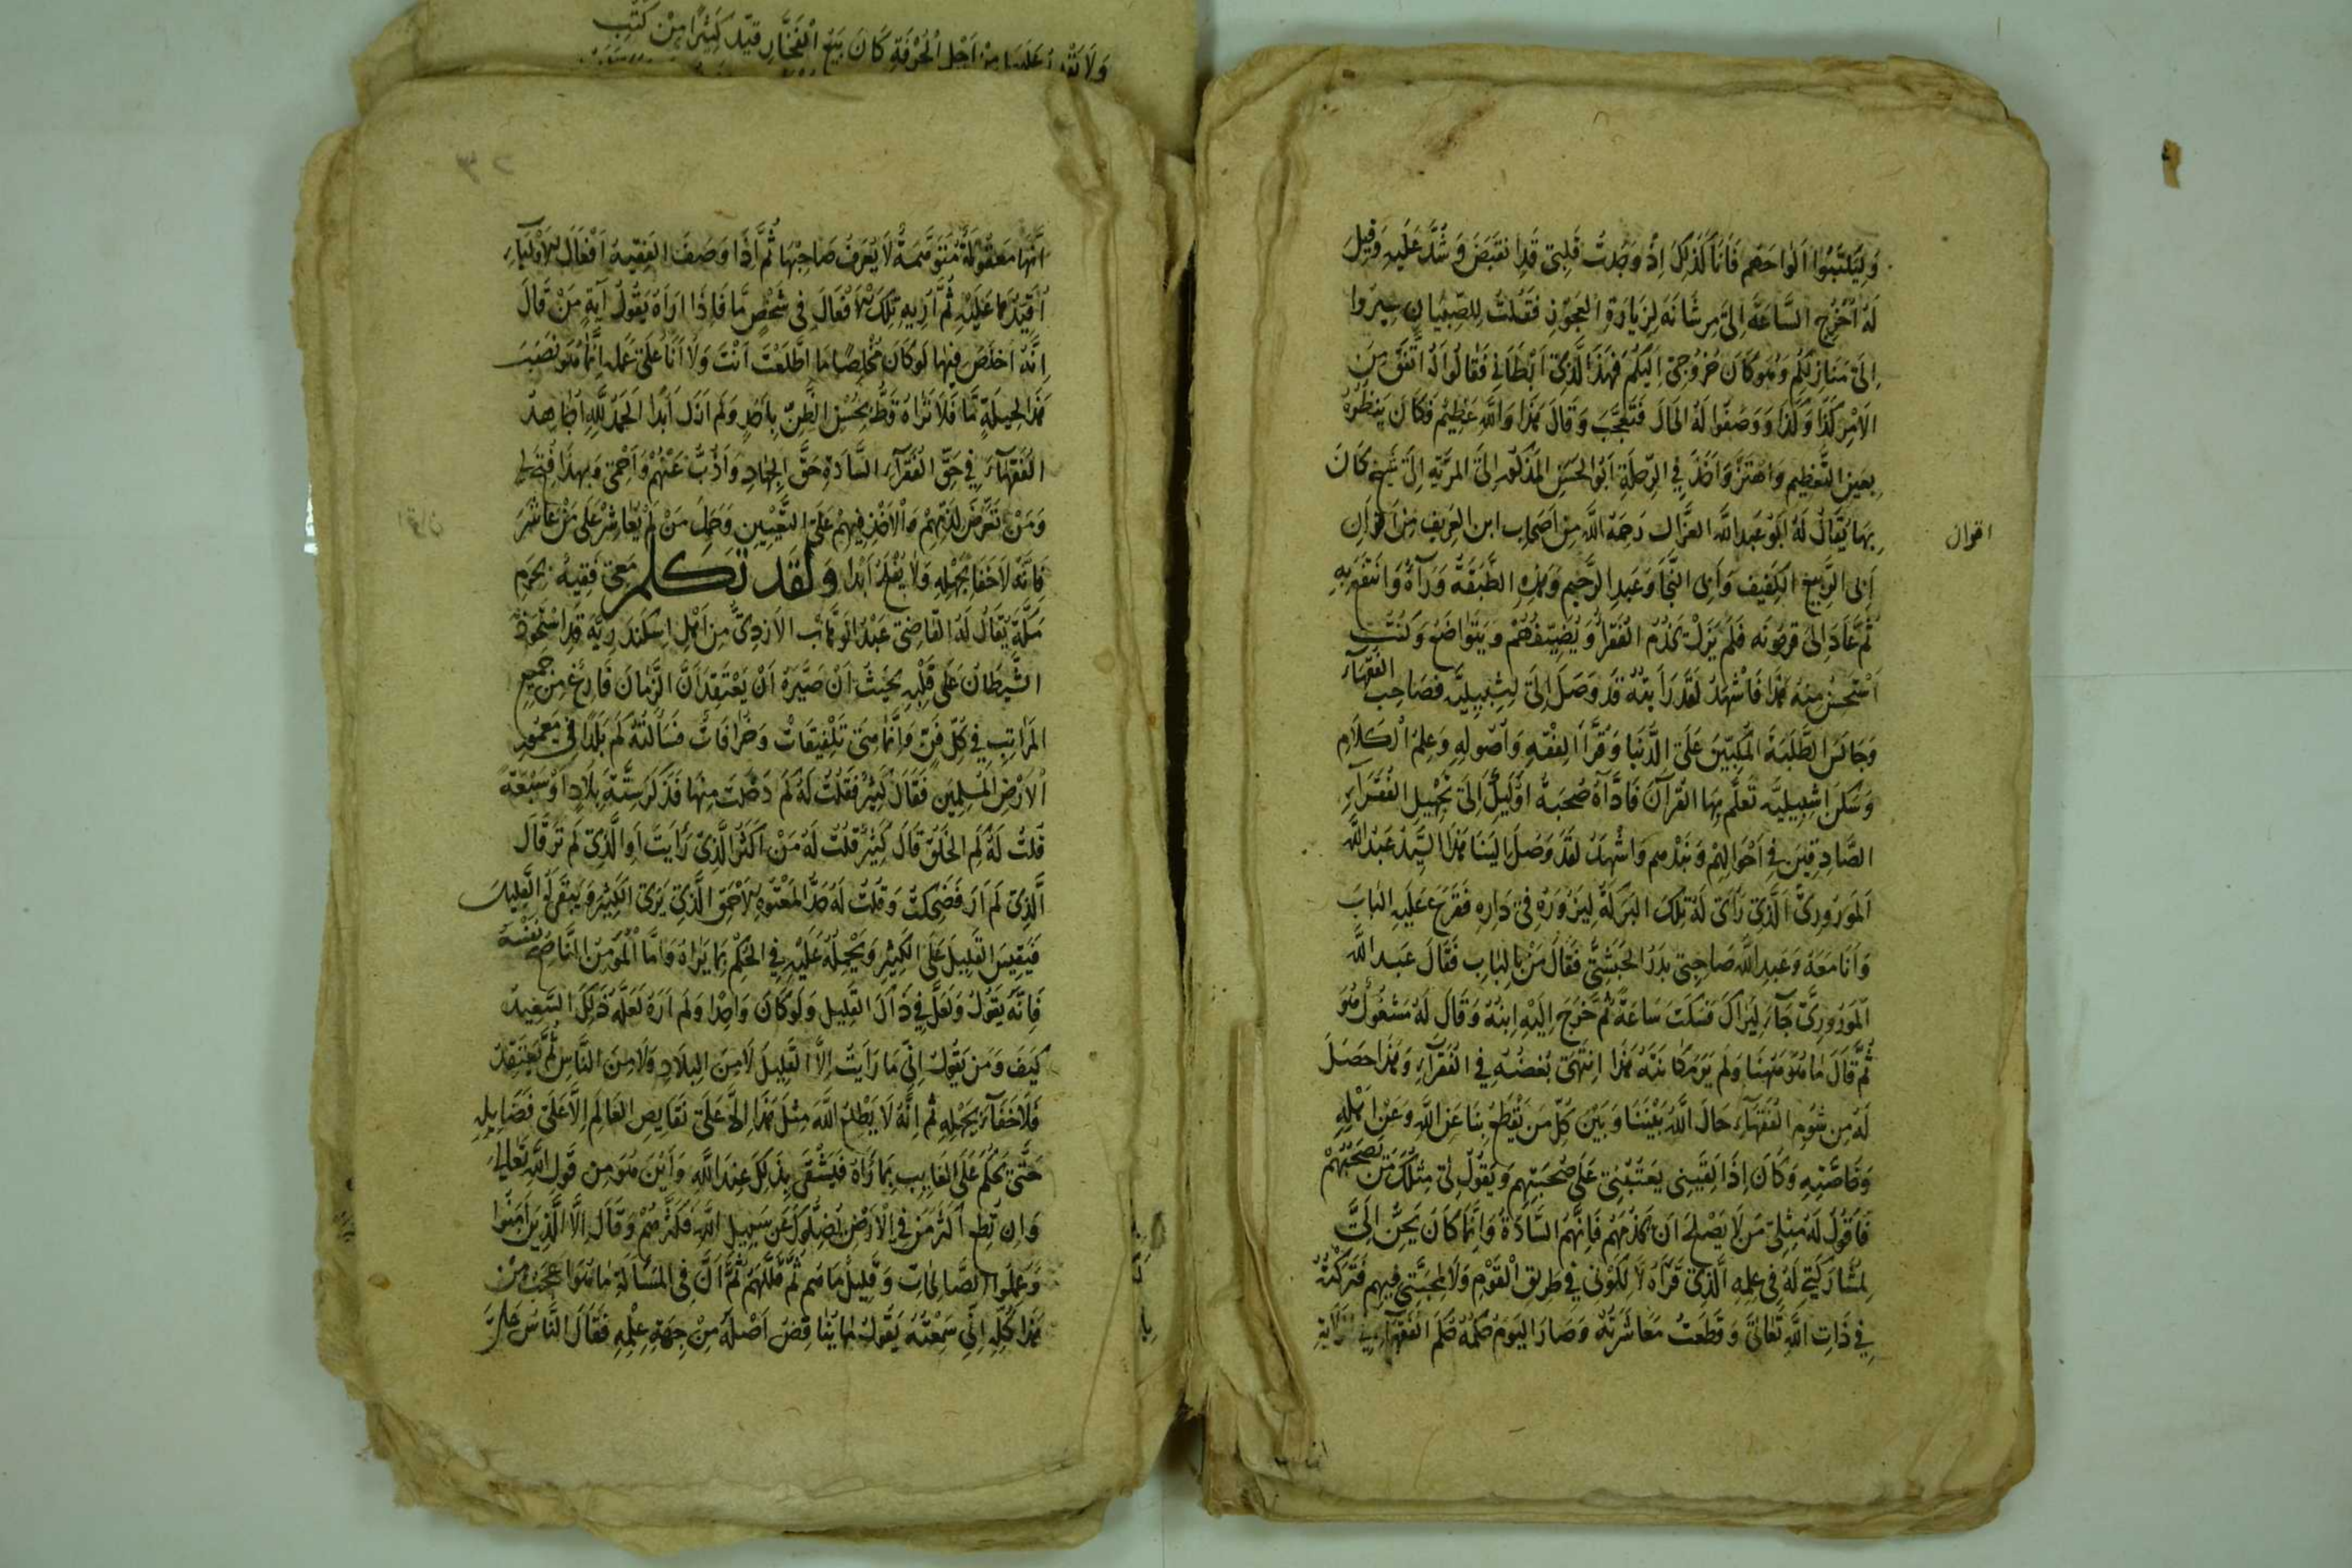 وَلِيَكْتُبُوا اَلْوَاحَهُم فَاَنَا كَذٰلِكَ اِذْ وَجَدتُ قَلْبِى قَدِ انقَبَضَ وَشُدَّ عَلَيهِ وَقِيلَ
لَهُ اُخْرُجِ السَّاعَةَ اِلىٰ مرشانَه لِزِيَارَةِ العَجُوْزِ فَقُلتُ لِلصِّبْيَانِ سِيرُوا
اِلىٰ مَنَازِلِكُم وَهُوَ كَانَ خُرُوجِى اِلَيكُم فَهٰذَا الَّذِىٓ اَبْطَانِى فَقَالُوا لَهُ اتَّفَقَ مِنَ
الاَمْرِ كَذَا وَكَذَا وَوَصَفُوا لَهُ الحَالَ فَتَعَجَّبَ وَقَالَ هٰذَا وَاللّٰهِ عَظِيْم فَكَانَ يَنظُرُهُ
بِعَينِ التَّعظِيمِ وَاهتَزَّ وَاَخَذَ فِى الرِّحلَةِ اَبُو الحَسَنِ المَذكُوْر اِلىَ المريّهِ اِلىٰ شَيخٍ كَانَ
بِهَا يُقَالُ لَهُ اَبُوْ عَبدِ اللّٰهِ الغزَّال رَحِمَهُ اللّٰهُ مِنْ اَصحَابِ ابن العَرِيفِ مِنْ اَقرَانِ
اقوال
اَبِى الرَّبِيعِ الكَفِيف وَاَبِى النَّجَا وَعَبدِ الرَّحِيمِ وَهٰذِهِ الطَّبَقَةُ وَرَآهُ وَانتَفَعَ بِهِ
ثُمَّ عَادَ اِلىٰ قرمُونَه فَلَمْ يَزَلْ يَخْدُم الفُقَرَاءَ وَيُضِيفُهُمْ وَيَتَوَاضَعُ وَكُنتُ
اَسْتَحْسِنُ مِنهُ هٰذَا فَاشْهَدُ لَقَدْ رَاَيتُهُ قَد وَصَلَ اِلىٰ اِشْبِيلِيَّه فَصَاحبَ الفُقَهَآءَ
وَجَالَسَ الطَّلَبَةَ المُكِبِّينَ عَلَى الدُّنيَا وَقَرَأَ الفِقْهَ وَاُصُولِهِ وَعِلمَ الكَلَامِ
وَسَكَنَ اِشبِيلِيَّه تُعَلّم بِهَا القُرآنَ فَادَّاهُ صُحبَةُ اُولٰئِكَ اِلىٰ تَجْهِيلِ الفُقَرَآءِ
الصَّادِقِينَ فِى اَحْوَالِهِمْ وَنَبْذِهِم وَاشْهَدُ لَقَدْ وَصَلَ اِلَينَا هٰذَا السَّيِّد عَبدُ اللّٰهِ
المَورُورِىّ الَّذِىْ رَأَى لَهُ تِلكَ البَرَكَةَ لِيَزُوْرَهُ فِى دَارِهِ فَقَرَعَ عَلَيهِ البَابَ
وَاَنَا مَعَهُ وَعَبدِ اللّٰهِ صَاحِبِى بَدرُ الحَبَشِىُّ فَقَالَ مَنْ بِالبَابِ فَقَالَ عَبدُ اللّٰهِ
المَورُورِىُّ جَآءَ لِيَرَاكَ فَسَكَتَ سَاعَةً ثُمَّ خَرَجَ اِلَيهِ ابنُهُ وَقَالَ لَهُ مَشغُولٌ هُوَ
ثُمَّ قَالَ مَا هُوَ هٰهُنَا وَلَم يَرَهُ هٰذَا اِنتَهىٰ بُغضُهُ فِى الفُقَرَآءِ وَهٰذَا حَصَلَ
لَهُ مِن شُومِ الفُقَهَآءِ حَالَ اللّٰهُ بَيْنَنَا وَبَيْنَ كُلِّ مَن يَقْطَعُ بِنَا عَنِ اللّٰهِ وَعَنْ اَهْلِهِ
وَخَاصَّتِهِ وَكَانَ اِذَا لَقِيَنِى يَعتُبُنِى عَلىٰ صُحبَتِهِم وَيَقُولُ لِىْ مِثلُكَ مَنْ يَصْحَبُهُمْ
فَاَقُولُ لَهُ مِثْلِىْ مَن لَا يَصْلُحُ اَن يَخدُمَهُم فَاِنَّهُمُ السَّادَةُ وَاِنَّمَا كَانَ يَحِنُّ اِلَىَّ
لِمُشَارَكَتِى لَهُ فِى عِلمِهِ الَّذِى قَرَأَهُ لَا لِكَوْنِى فِى طَرِيقِ القَوْمِ وَلَا لِمَحَبَّتِى فِيهِم فَتَرَكْتُهُ
فِى ذَاتِ اللّٰهِ تَعَالىٰ وَقَطَعتُ مُعَاشَرَتَهُ وَصَارَ اليَومَ حُكمُهُ حُكمَ الفُقَهَآءِ فِى
اَنَّهَا مَعقُولَةٌ مُتَوَهَّمَةٌ لَا يُعرَفُ صَاحِبُهَا ثُمَّ اِذَا وَصَفَ الفَقِيهُ اَفْعَالَ الاَوْلِيَآءِ
اُقَيِّدُهَا عَلَيْهِ ثُمَّ اُرِيهِ تِلكَ الاَفْعَالَ فِى شَخْصٍ مَّا فَاِذَا ارَاهُ يَقُولُ اَيَّةٍ مَنْ قَالَ
اِنَّهُ اَخلَصَ فِيهَا لَوْ كَانَ مُخْلِصًا مَا اطَّلَعْتَ اَنْتَ وَلَا اَنَا عَلىٰ عَمَلِهِ اِنَّمَا هُوَ نَصَبَ
هٰذَا لِحِيلَةٍ مَّا فَلَا تَرَاهُ قَطُّ يُحْسِنُ الظَّنَّ بِاَحَدٍ وَلَم اَزَل اَبَدًا الحَمدُ لِلّٰهِ اُجَاهِدُ
الفُقَهَآءَ فِى حَقِّ الفُقَرَآءِ السَّادَةِ حَقَّ الجِهَادِ وَاَذُبُّ عَنْهُمْ وَاَحْمِى وَبِهٰذَا فُتِحَ لِى
وَمَنْ تَعَرَّضَ لِذَمِّهِمْ وَالاَخْذِ فِيهِمْ عَلَى التَّعْيِينِ وَحَمَلَ مَنْ لَمْ يُعَاشِرْ عَلىٰ مَنْ عَاشَرَ
فَاِنَّهُ لَا خَفَا بِجَهْلِهِ وَلَا يُفْلِحُ اَبَدًا وَلَقَد تَكلم مَعِى فَقِيهٌ بِحَرَمِ
مَكَّةَ يُقَالُ لَهُ القَاضِى عَبْدُ الوَهَّابِ الاَزدِىُّ مِن اَهْلِ اِسكَندَرِيَّه قَدِ استَحْوَذَ
الشَّيطَانُ عَلىٰ قَلْبِهِ بِحَيثُ اَنْ صَيَّرَهُ اَنْ يَعْتَقِدَ اَنَّ الزَّمَانَ فَارِغٌ مِن جَمِيعِ
المَرَاتِبِ فِى كُلِّ فَنٍّ وَاِنَّمَا هِىَ تَلْفِيقَاتٌ وَخُرَافَاتٌ فَسَاَلتُهُ كَم بَلَدًا فِى مَعمُورِ
الاَرْضِ لِلمُسلِمِينَ فَقَالَ كَثِيْرٌ فَقُلتُ لَهُ كَم دَخَلتَ مِنْهَا فَذَكَرَ سِتَّةَ بِلَادٍ اَوْ سَبْعَةً
قُلتُ لَهُ كَمِ الخَلقُ قَالَ كَثِيْرٌ قُلتُ لَهُ مَنْ اَكثَرُ الَّذِى رَاَيتَ اَوِ الَّذِى لَم تَرَ قَالَ
الَّذِى لَم اَرَ فَضَحِكتُ وَقُلتُ لَهُ حَدُّ المَعْتُوهِ الاَحْمَقِ الَّذِى يَرَى الكَثِيرَ وَيَبقىٰ لَهُ القَلِيلُ
فَيَقِيسُ القَلِيلَ عَلَى الكَثِيرِ وَيَحْمِلُهُ عَلَيْهِ فِى الحُكْمِ بِمَا يَرَاهُ وَاَمَّا المُؤمِنُ النَّاصِحُ نَفْسَهُ
فَاِنَّهُ يَقُولُ وَلَعَلَّ فِى ذَاكَ القَلِيلِ وَلَوْ كَانَ وَاحِدًا وَلَم اَرَهُ لَعَلَّهُ ذٰلِكَ السَّعِيدُ
كَيفَ وَمَن يَقُولُ اِنِّى مَا رَاَيتُ اِلَّا القَلِيلَ لَا مِنَ البِلَادِ وَلَا مِنَ النَّاسِ ثُمَّ يَعتَقِدُ
فَلَا خَفَآءَ بِجَهْلِهِ ثُمَّ اِنَّهُ لَا يُطْلِعُ اللّٰهُ مِثلَ هٰذَا اِلَّا عَلىٰ نَقَايِصِ العَالَمِ لَا عَلىٰ فَضَايِلِهِ
حَتّىٰ يَحكُمَ عَلَى الغَايِبِ بِمَا رَاهُ فَيَشْقىٰ بِذٰلِكَ عِندَ اللّٰهِ وَاَيْنَ هُوَ مِن قَولِ اللّٰهِ تَعَالىٰ
وَاِن تُطِع اَكثَرَ مَن فِى الاَرْضِ يُضِلُّوكَ عَن سَبِيلِ اللّٰهِ فَكَثَّرَهُمْ وَقَالَ اِلَّا الَّذِينَ اٰمَنُوا
وَعَمِلُوا الصَّالِحَاتِ وَقَلِيلٌ مَا هُم ثُمَّ قَلَّلَهُمْ ثُمَّ اَنَّ فِى المَسْأَلَةِ مَا هُوَ اَعجَبُ مِنْ
هٰذَا كُلِّهِ اِنِّى سَمِعْتُهُ يَقُولُ مَا يُنَاقِضُ اَصْلَهُ مِنْ جِهَةِ عِلمِهِ فَقَالَ النَّاسُ عَلىٰ